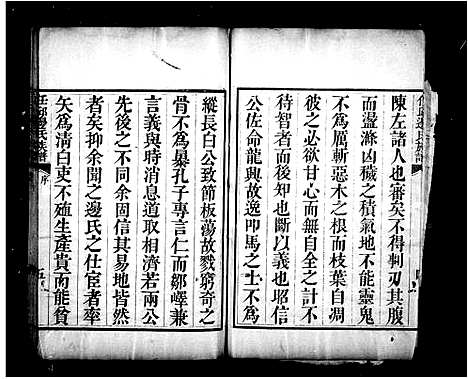 陳左諸人也審矣不得剚刃其腹
而盪滌凶穢之積氣地不能靈鬼
不為厲斬惡木之根而枝葉自凋
彼之必欲甘心而無自全之計不
待智者而後知也斷以義也昭信
公佐命龍興故逸叩馬之士不為
縱長白公致節板蕩故戮窮奇之
骨不為暴孔子專言仁而鄒嶧兼
言義與時消息道取相濟若兩公
先後之則因其易地皆然之言
者矣抑余聞之邊氏之仕宦者率
矢為清白吏不殖生產貴而能貧
任邱邊氏族譜
序
五